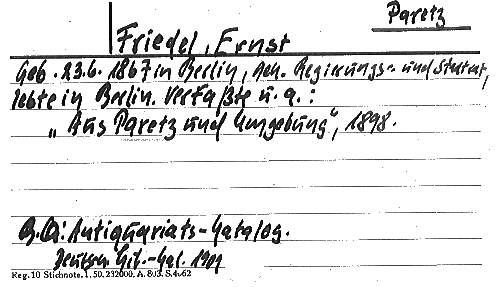 Paretz
Friedel, Ernst
Geb. 23.6.1867 in Berlin, Geh. Regierungs- und Stadtrat,
lebte in Berlin. Verfaßte u. a.:
„Aus Paretz und Umgebung", 1898.
B.Q.: Antiquariats-Katalog.
Deutsch. Lit.-Kal. 1909
Reg. 10 Stichnote. 1. 50. 232000. A. 803. S. 4. 62